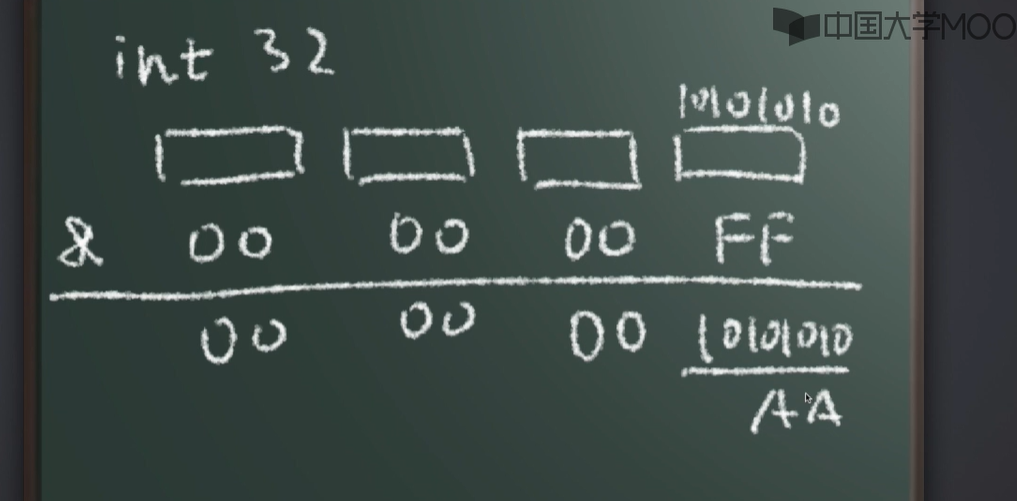 中国大学MOO
int 32
10101010
& 00 00 00 FF
00 00 00 10101010
AA